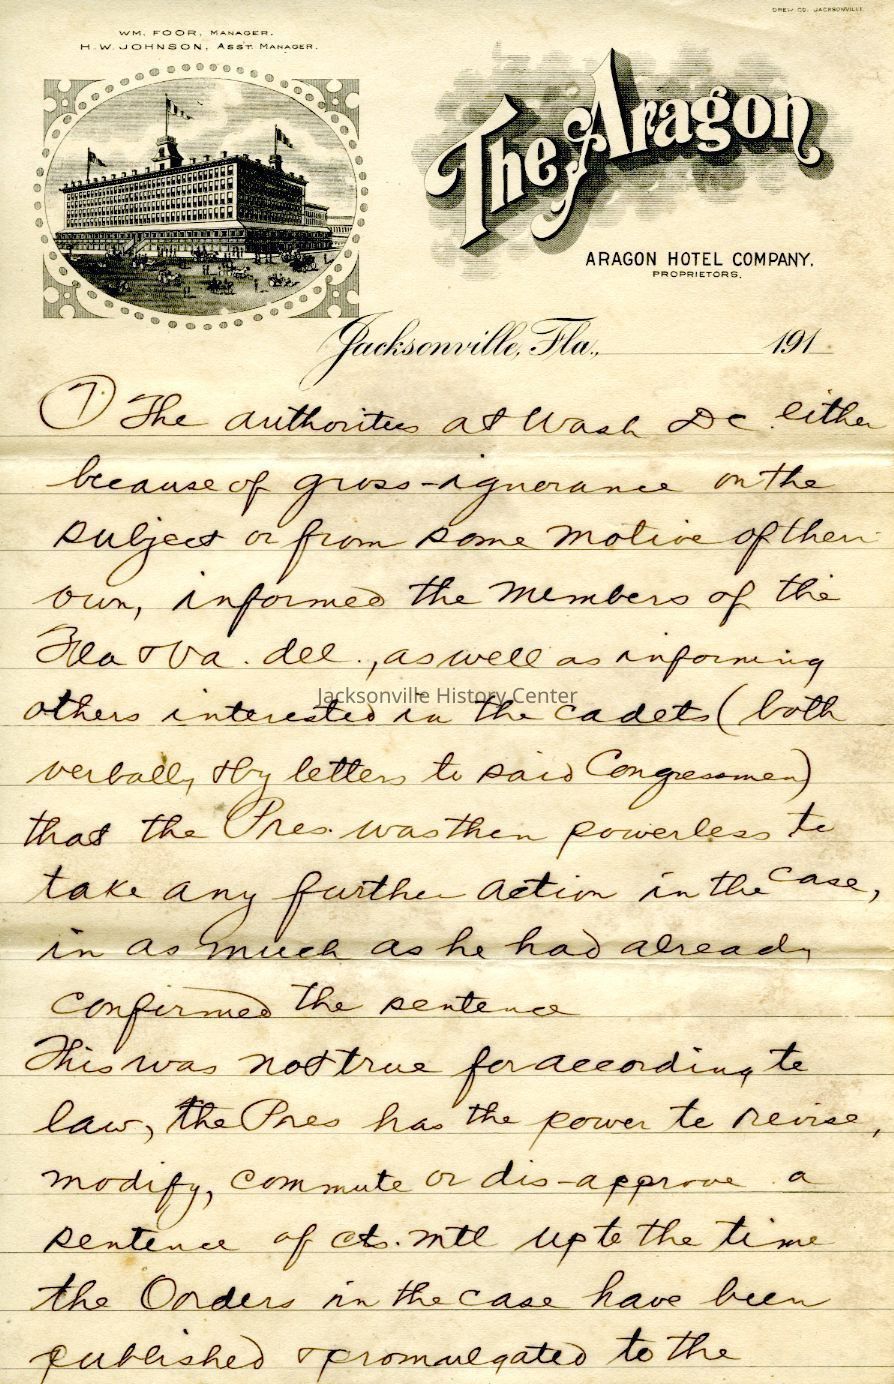 DREW CO. JACKSONVILLE.
WM. FOOR, MANAGER.
H. W. JOHNSON, ASST. MANAGER.
The Aragon
ARAGON HOTEL COMPANY,
PROPRIETORS.
Jacksonville, Fla., 191
① The authorities at Wash DC. either
because of gross-ignorance on the
subject or from some motive of their
own, informed the members of the
Fla & Va. del., as well as informing
Jacksonville History Center
others interested in the cadets (both
verbally & by letters to said Congressmen)
that the Pres. was then powerless to
take any further action in the case,
in as much as he had already
confirmed the sentence
This was not true for according to
law, the Pres has the power to revise,
modify, commute or dis-approve a
sentence of cts. mtl up to the time
the Oorders in the case have been
published & promulgated to the